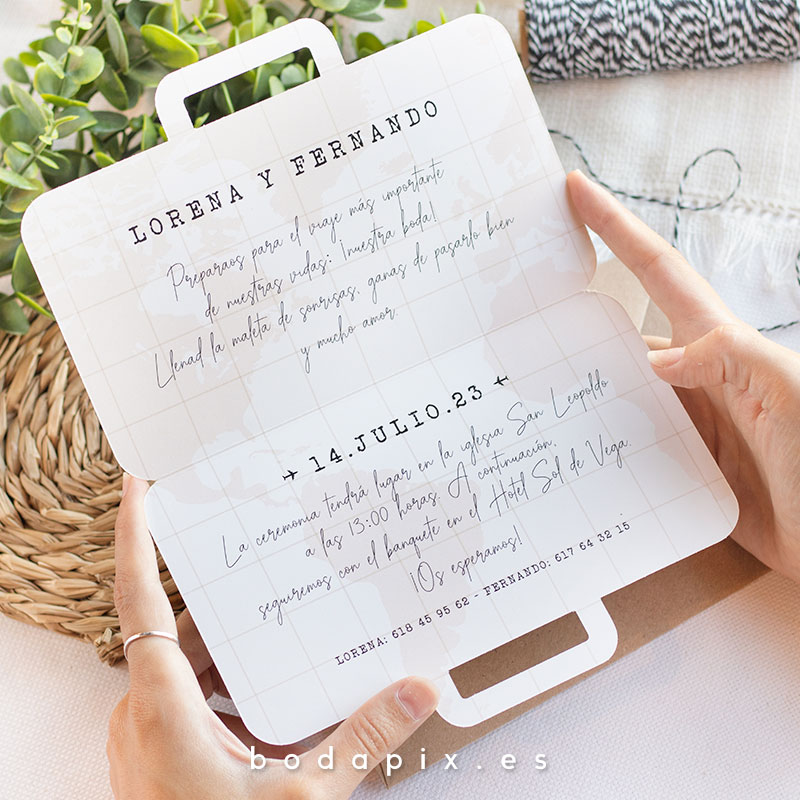 LORENA Y FERNANDO
Preparaos para el viaje más importante
de nuestras vidas: ¡nuestra boda!
Llenad la maleta de sonrisas, ganas de pasarlo bien
y mucho amor.
14.JULIO.23
La ceremonia tendrá lugar en la iglesia San Leopoldo
a las 13:00 horas. A continuación,
seguiremos con el banquete en el Hotel Sol de Vega.
¡Os esperamos!
LORENA: 618 45 95 62 - FERNANDO: 617 64 32 15
bodapix.es